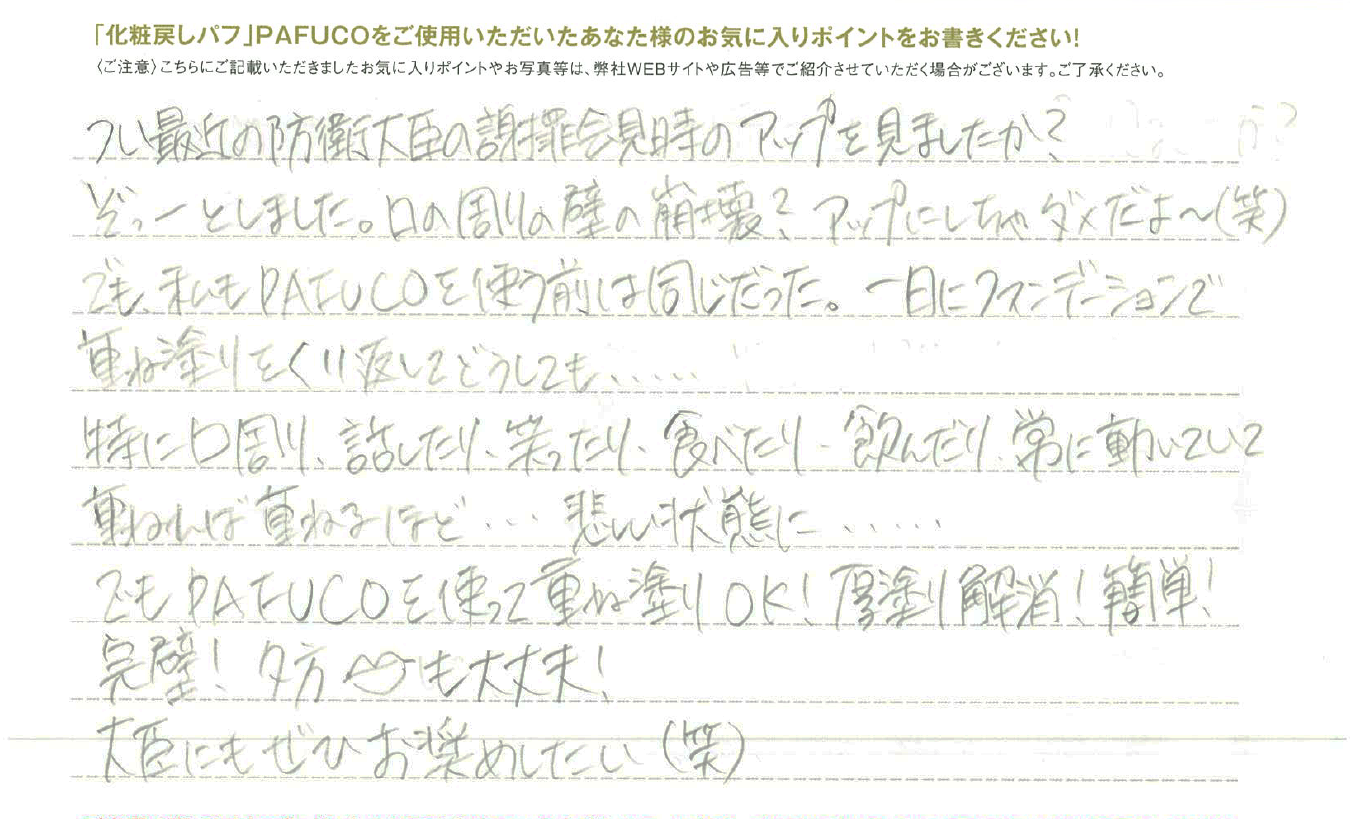 「化粧戻しパフ」PAFUCOをご使用いただいたあなた様のお気に入りポイントをお書きください!
〈ご注意〉こちらにご記載いただきましたお気に入りポイントやお写真等は、弊社WEBサイトや広告等でご紹介させていただく場合がございます。ご了承ください。
つい最近の防衛大臣の謝罪会見時のアップを見ましたか?
ぞっーとしました。口の周りの壁の崩壊?アップにしちゃダメだよ〜(笑)
でも、私もPAFUCOを使う前は同じだった。一日にファンデーションで
重ね塗りをくり返してどうしても、.....
特に口周り、話したり、笑ったり、食べたり、飲んだり、常に動いていて
重ねれば重ねるほど...悲しい状態に......
でもPAFUCOを使って重ね塗りOK!厚塗り解消!簡単!
完璧!夕方も大丈夫!
大臣にもぜひお奨めしたい(笑)